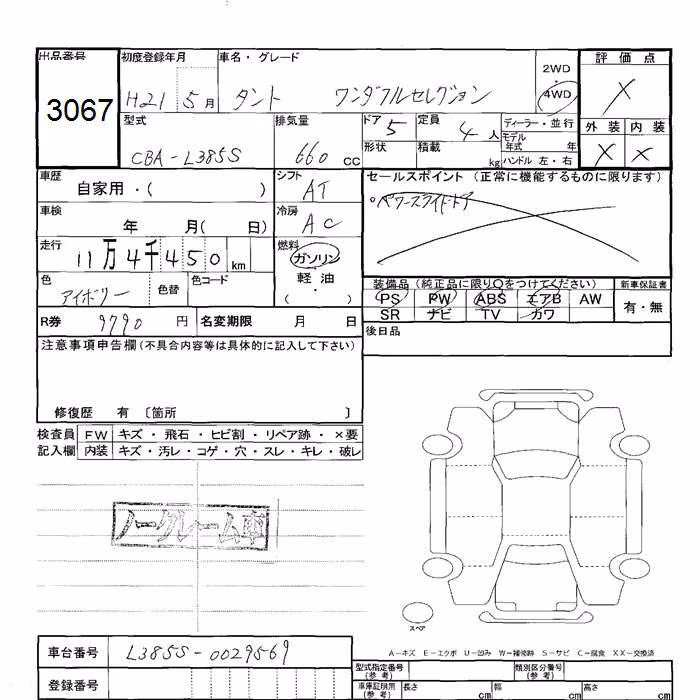 出品番号 初度登録年月 車名・グレード 2WD 評価点
3067 H21 5月 タント ワンダフルセレクション 4WD X
型式 排気量 ドア 5 定員 4人 ディーラー・並行 外装 内装
CBA-L385S 660cc 形状 積載 kg モデル年式 年 ハンドル 左・右 X X
車歴 自家用・( ) シフト AT セールスポイント (正常に機能するものに限ります)
車検 年 月( 日) 冷房 AC 。パワースライドドア
走行 11万4千450km 燃料 ガソリン
色 アイボリー 色替 色コード 軽油 ・( ) 装備品(純正品に限り○をつけてください) 新車保証書
PS PW ABS エアB AW 有・無
R券 9790円 名変期限 月 日 SR ナビ TV カワ
注意事項申告欄(不具合内容等は具体的に記入して下さい) 後日品
修復歴 有 〔箇所 〕
検査員 FW キズ・飛石・ヒビ割・リペア跡・×要
記入欄 内装 キズ・汚レ・コゲ・穴・スレ・キレ・破レ
ノークレーム車
スペア
A-キズ E-エクボ U-凹み W-補修跡 S-サビ C-腐食 XX-交換済
車台番号 L385S-0029569 型式指定番号(参考) 類別区分番号(参考)
登録番号 車庫証明用(参考) 長さ cm 幅 cm 高さ cm